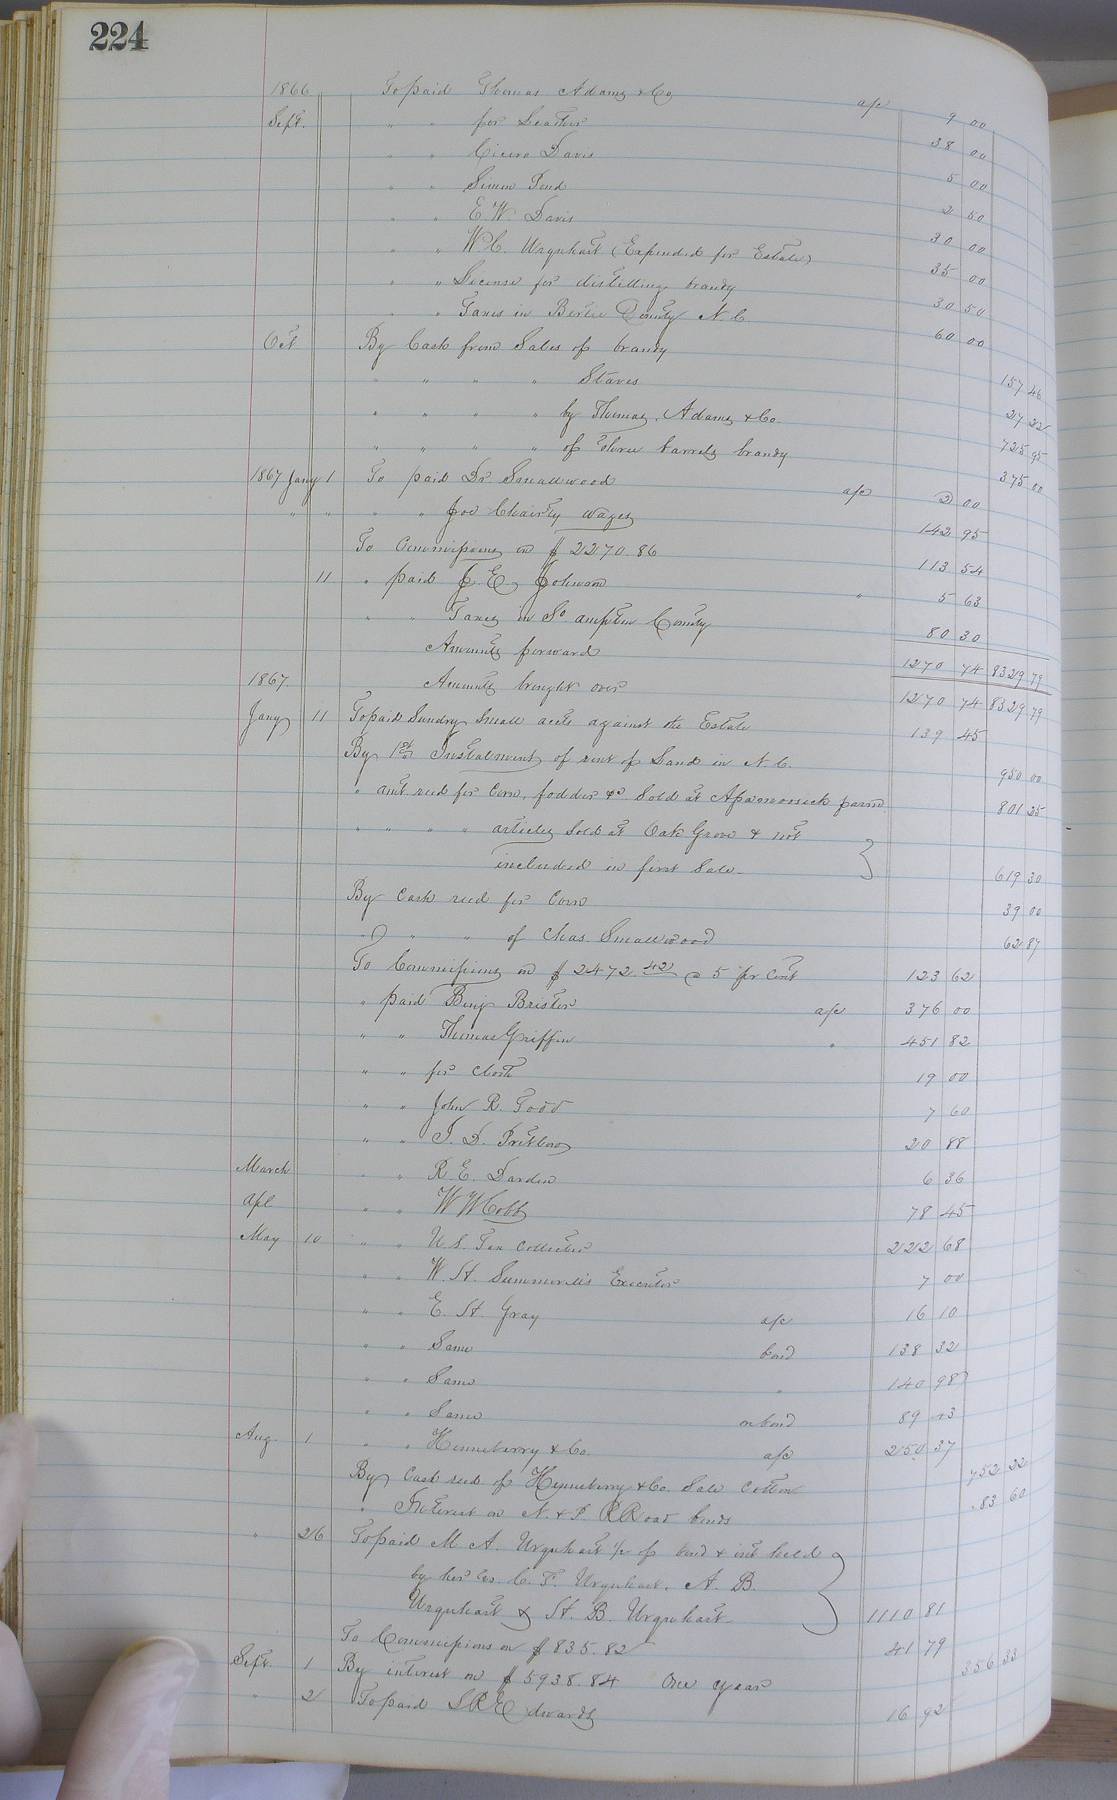 224
1866 To paid Thomas Adams & Co a/c 9 00
Sept. " " for Leather 38 00
" " Cicero Davis 5 00
" " Simon Pond 2 50
" " E. W. Davis 30 00
" " W C. Urquhart (Expended for Estate) 35 00
" " License for distilling brandy 30 50
" " Taxes in Bertie County N. C 60 00
Oct By Cash from Sales of brandy 157 46
" " " " Staves 27 22
" " " " by Thomas, Adams & Co. 725 95
" " " " of three barrels brandy 375 00
1867 Jany 1 To paid Dr Smallwood a/c 2 00
" " " " Joe Charity wages 142 95
To Commissions on $ 2270.86 113 54
11 " paid J. E. Johnson " 5 63
" " Taxes in So ampton County 80 30
Amounts forward 1270 74 8329 79
1867. Amounts brought over 1270 74 8329 79
Jany 11 To paid Sundry Small accts against the Estate 139 45
By 1st Instalment of rent of Land in N. C. 950 00
" amt. recd for Corn, fodder &c Sold at Apamoosick farm 801 25
" " " " articles Sold at Oak Grove & not
included in first Sale 619 30
By Cash recd for Corn 39 00
" " " of Chas. Smallwood 62 87
To Commissions on $ 2472.42 @ 5 pr Cent 123 62
" paid Benj Brister a/c 376 00
" " Thomas Griffin " 451 82
" " for cloth 19 00
" " John R. Todd 7 60
" " 20 88
March " " R. E. Darden 6 36
Apl " " W W Cobb 78 45
May 10 " " U. S. Tax Collector 222 68
" " W. H. Summerell's Executor 7 00
" " E. H. Gray a/c 16 10
" " Same bond 138 32
" " Same " 140 98
" " Same on bond 89 23
Aug. 1 " " Henneberry & Co. a/c 250 37
By Cash recd of Henneberry & Co. Sale Cotton 752 22
" Interest on N. & P. R Road bonds 83 60
" 26 To paid M A. Urquhart of bond & int held
by her C. F. Urquhart, A. B.
Urquhart & H. B. Urquhart 1110 81
To Commissions on $ 835.82 41 79
Sept. 1 By interest on $ 5938.84 One year 356 33
" 2 To paid L R Edwards 16 92